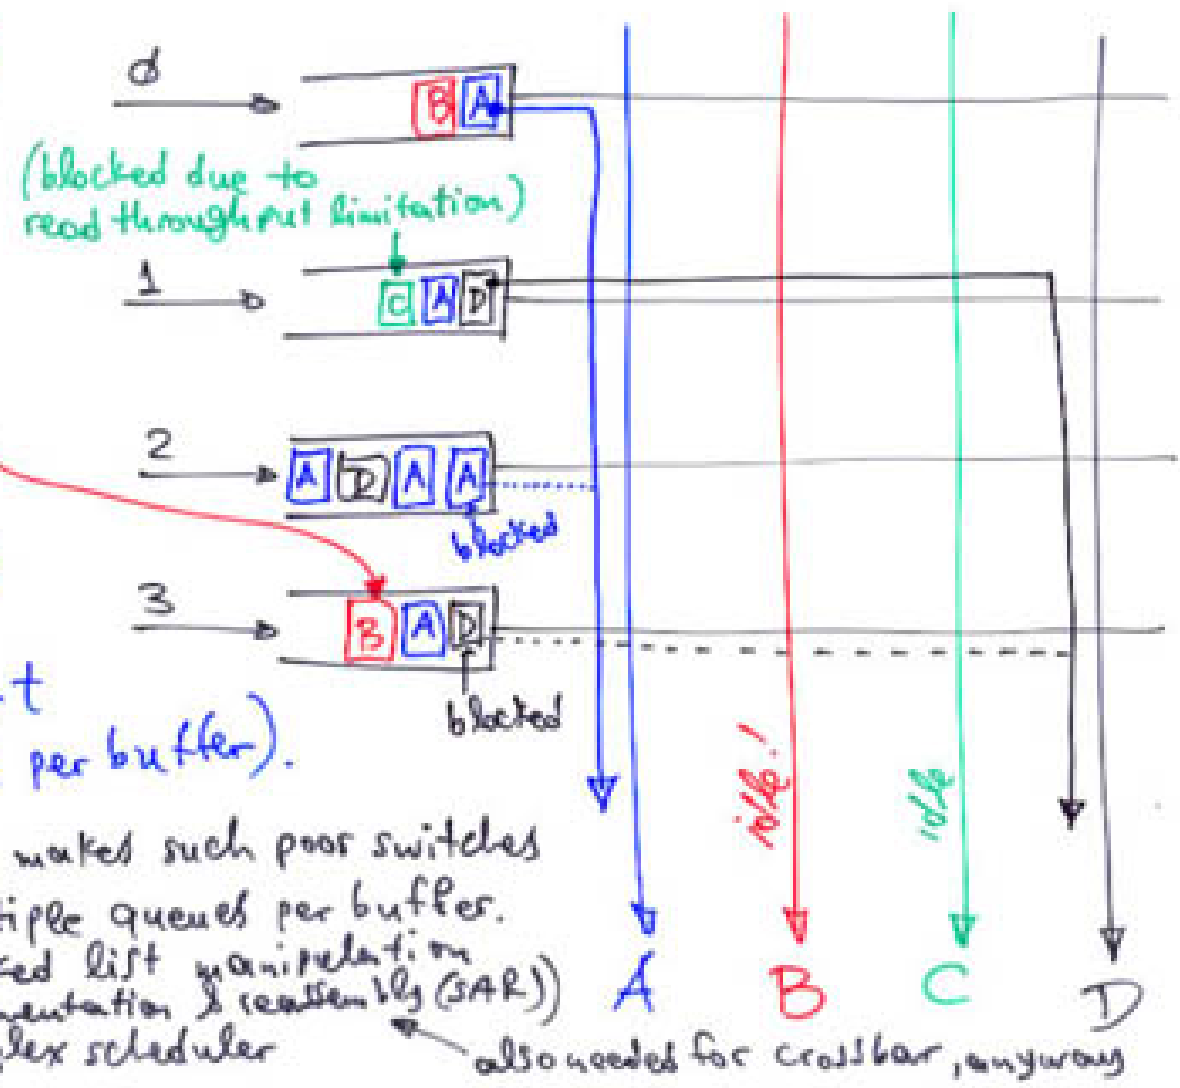 0
B A
(blocked due to
read throughput limitation)
1
C A D
2
A D A A
blocked
3
B A D
blocked
t
per buffer).
idle!
idle
makes such poor switches
tiple queues per buffer.
ked list manipulation
mentation & reassembly (SAR))
plex scheduler
A B C D
also needed for crossbar, anyway